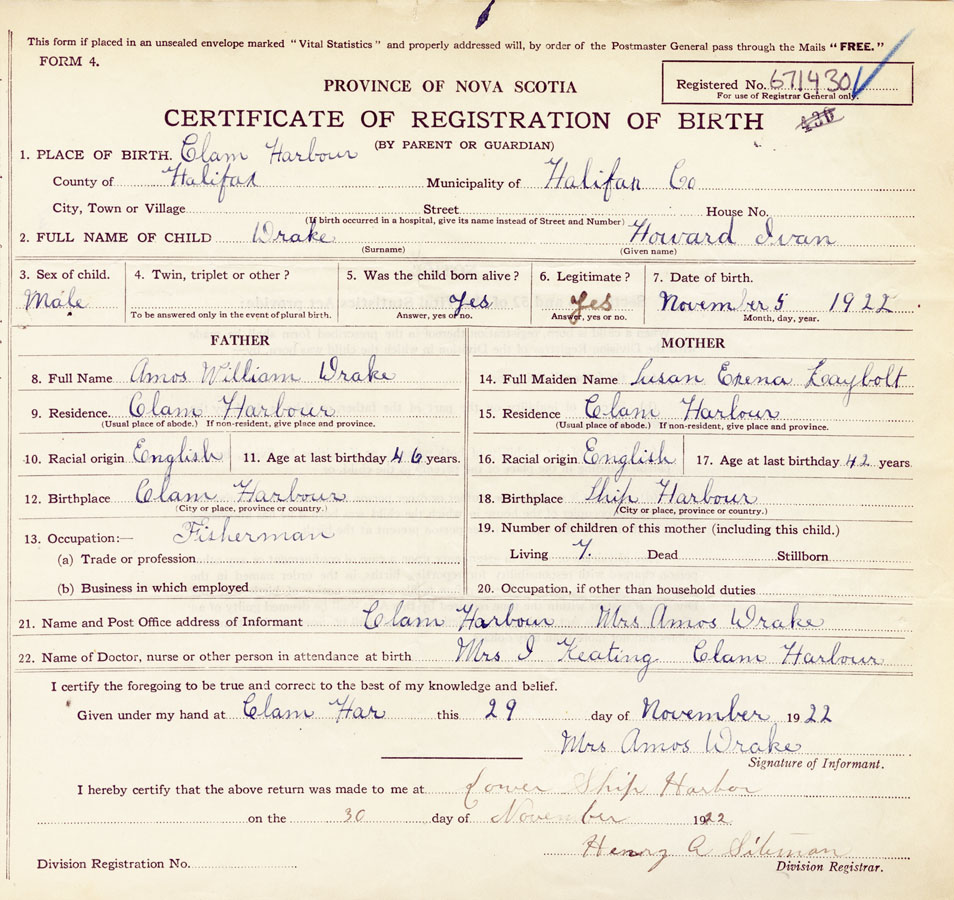 This form if placed in an unsealed envelope marked "Vital Statistics" and properly addressed will, by order of the Postmaster General pass through the Mails "FREE."
FORM 4.
PROVINCE OF NOVA SCOTIA
Registered No. 6719430
For use of Registrar General only.
CERTIFICATE OF REGISTRATION OF BIRTH
430
(BY PARENT OR GUARDIAN)
1. PLACE OF BIRTH. Clam Harbour
County of Halifax Municipality of Halifax Co
City, Town or Village Street House No.
(If birth occurred in a hospital, give its name instead of Street and Number)
2. FULL NAME OF CHILD Drake Howard Ivan
(Surname) (Given name)
3. Sex of child. 4. Twin, triplet or other? 5. Was the child born alive? 6. Legitimate? 7. Date of birth.
Male Yes Yes November 5 1922
To be answered only in the event of plural birth. Answer, yes or no. Answer, yes or no. Month, day, year.
FATHER
8. Full Name Amos William Drake
9. Residence. Clam Harbour
(Usual place of abode.) If non-resident, give place and province.
10. Racial origin English 11. Age at last birthday 46 years.
12. Birthplace Clam Harbour
(City or place, province or country.)
13. Occupation:— Fisherman
(a) Trade or profession
(b) Business in which employed
MOTHER
14. Full Maiden Name Susan Exena Laybolt
15. Residence Clam Harbour
(Usual place of abode.) If non-resident, give place and province.
16. Racial origin English 17. Age at last birthday 42 years
18. Birthplace Ship Harbour
(City or place, province or country.)
19. Number of children of this mother (including this child.)
Living 7. Dead Stillborn
20. Occupation, if other than household duties
21. Name and Post Office address of Informant Clam Harbour Mrs Amos Drake
22. Name of Doctor, nurse or other person in attendance at birth Mrs I Keating Clam Harbour
I certify the foregoing to be true and correct to the best of my knowledge and belief.
Given under my hand at Clam Har this 29 day of November 1922
Mrs Amos Drake
Signature of Informant.
I hereby certify that the above return was made to me at Lower Ship Harbor
on the 30 day of November 1922
Henry A Siteman
Division Registration No. Division Registrar.